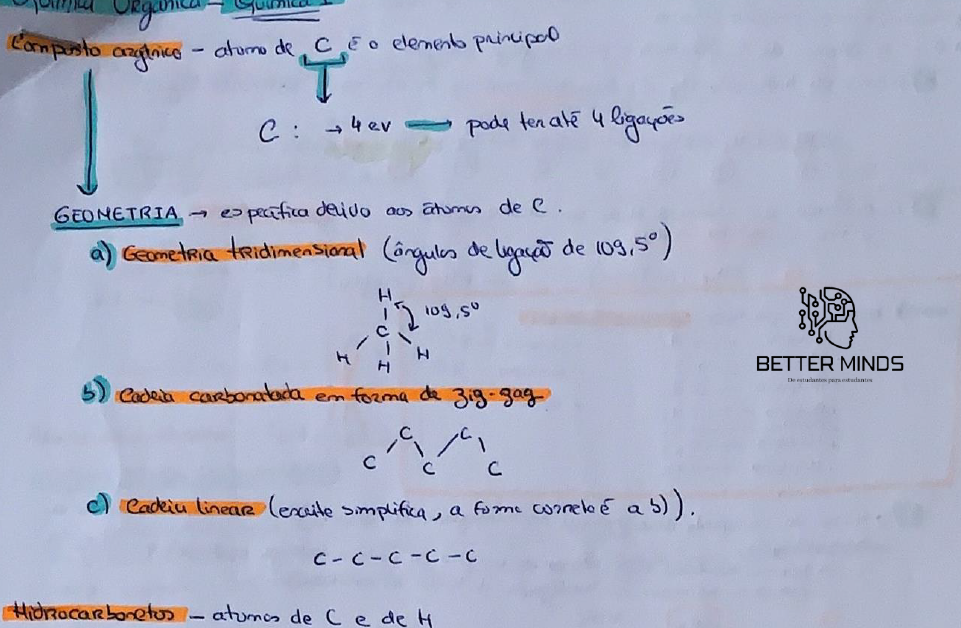 Química Orgânica - Química I
Composto orgânico - atomo de C é o elemento principal
C : → 4 ev → pode ter até 4 ligações
GEOMETRIA → específica devido aos átomos de C.
a) Geometria tridimensional (ângulos de ligação de 109,5º)
H
109,5º
C
H H
H
b) Cadeia carbonatada em forma de zig-zag
C C
C C C
c) Cadeia linear (escrita simplifica, a forma correta é a b)).
C - C - C - C - C
Hidrocarbonetos - atomos de C e de H
BETTER MINDS
De estudantes para estudantes